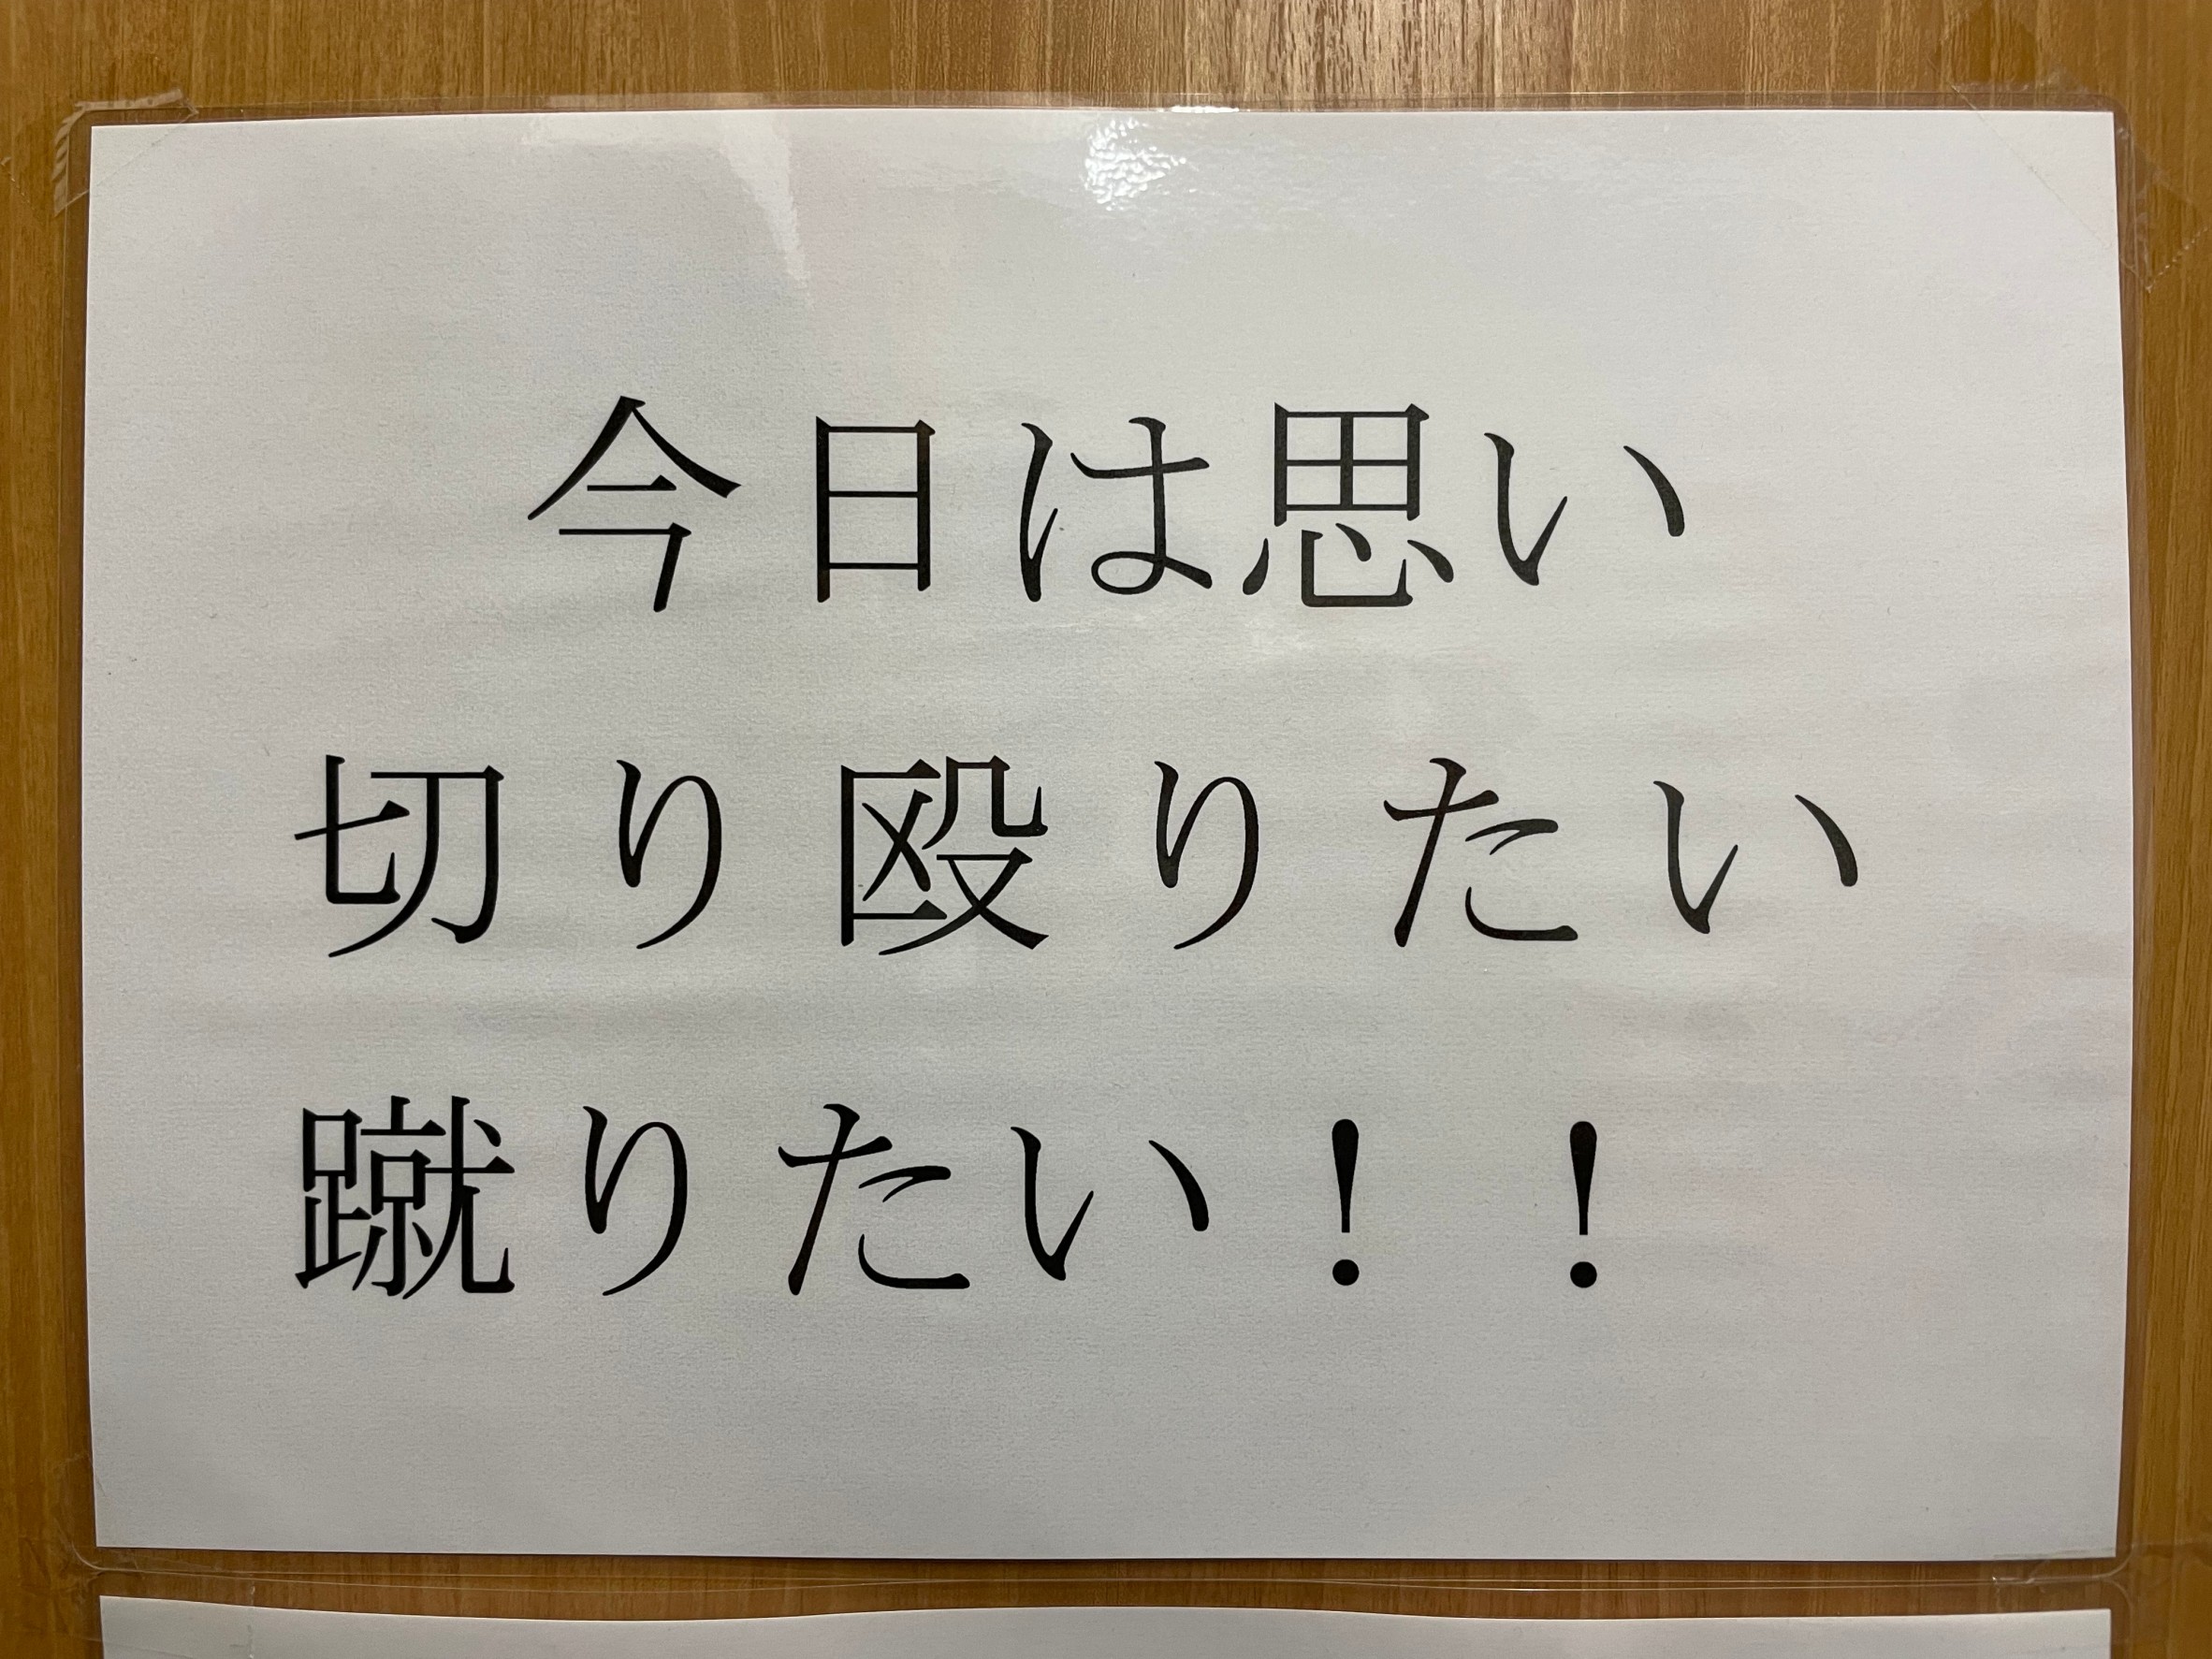 今日は思い
切り殴りたい
蹴りたい！！